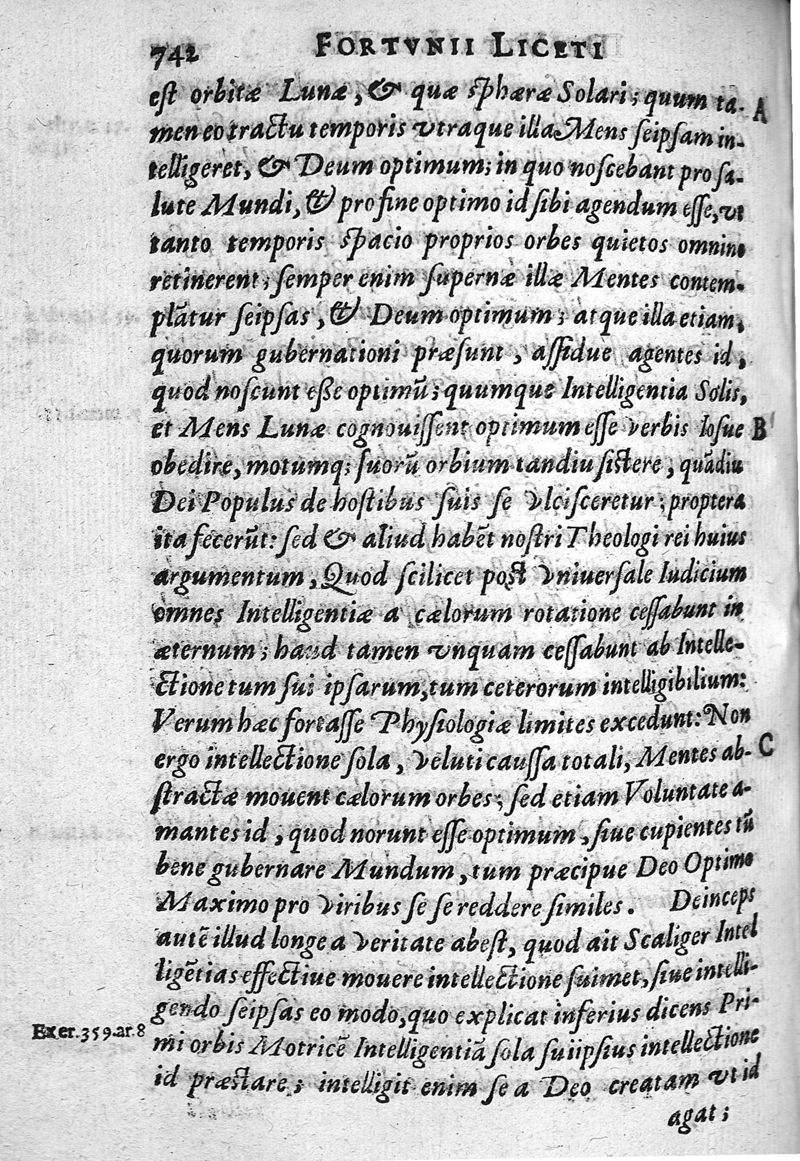 742 FORTVNII LICETI
est orbitæ Lunæ, & quæ sphæræ Solari; quum ta- A
men eo tractu temporis vtraque illa Mens seipsam in-
telligeret, & Deum optimum; in quo noscebant pro sa-
lute Mundi, & pro fine optimo id sibi agendum esse, vt
tanto temporis spacio proprios orbes quietos omnino
retinerent; semper enim supernæ illæ Mentes contem-
plātur seipsas, & Deum optimum; atque illa etiam,
quorum gubernationi præsunt, assidue agentes id,
quod noscunt eße optimū; quumque Intelligentia Solis,
et Mens Lunæ cognouissent optimum esse verbis Iosue B
obedire, motumq; suorū orbium tandiu sistere, quādiu
Dei Populus de hostibus suis se vlcisceretur; propterea
ita fecerūt: sed & aliud habēt nostri Theologi rei huius
argumentum, Quod scilicet post vniuersale Iudicium
omnes Intelligentiæ a cælorum rotatione cessabunt in
æternum; haud tamen vnquam cessabunt ab Intelle-
ctione tum sui ipsarum, tum ceterorum intelligibilium:
Verum hæc fortasse Physiologiæ limites excedunt: Non
ergo intellectione sola, veluti caussa totali, Mentes ab- C
stractæ mouent cælorum orbes; sed etiam Voluntate a-
mantes id, quod norunt esse optimum, siue cupientes tū
bene gubernare Mundum, tum præcipue Deo Optimo
Maximo pro viribus se se reddere similes. Deinceps
autē illud longe a veritate abest, quod ait Scaliger Intel
ligētias effectiue mouere intellectione suimet, siue intelli-
gendo seipsas eo modo, quo explicat inferius dicens Pri-
Exer. 359. ar. 8 mi orbis Motricē Intelligentiā sola suiipsius intellectione
id præstare; intelligit enim se a Deo creatam vt id
agat;